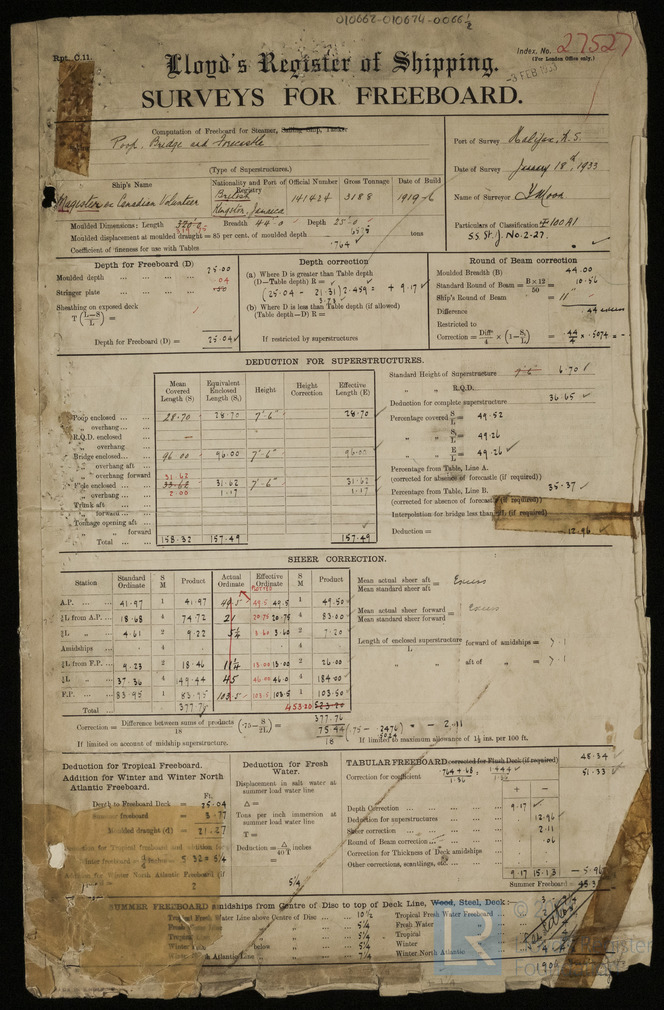 010662-010674-0066½
Rpt. C.11.
Index. No. 27527
(For London Office only.)
3 FEB 1933
Lloyd's Register of Shipping.
SURVEYS FOR FREEBOARD.
Computation of Freeboard for Steamer, Sailing Ship, Tanker
Poop, Bridge and Forecastle
(Type of Superstructures.)
Port of Survey Halifax, N.S.
Date of Survey January 18th, 1933
Name of Surveyor
Particulars of Classification +100A1
SS St. J. No. 2-27.
Ship's Name
Nationality and Port of Registry
Official Number
Gross Tonnage
Date of Build
Magister ex Canadian Volunteer
British
Kingston, Jamaica
141424
3188
1919-6
Moulded Dimensions: Length Breadth 44.0 Depth 25.0
Moulded displacement at moulded draught = 85 per cent. of moulded depth tons
Coefficient of fineness for use with Tables .764
Depth for Freeboard (D)
Moulded depth 25.00
Stringer plate .04
Sheathing on exposed deck
T (L-S/L) =
Depth for Freeboard (D) = 25.04
Depth correction
(a) Where D is greater than Table depth
(D—Table depth) R =
(25.04 - 21.31) 2.459 = + 9.17
3.73
(b) Where D is less than Table depth (if allowed)
(Table depth—D) R =
If restricted by superstructures
Round of Beam correction
Moulded Breadth (B) 44.00
Standard Round of Beam = B×12/50 = 10.56
Ship's Round of Beam = 11
Difference .44 excess
Restricted to
Correction = Diff/4 × (1-S/L) = .44/4 × .5074 = -
DEDUCTION FOR SUPERSTRUCTURES.
Mean Covered Length (S)
Equivalent Enclosed Length (S₁)
Height
Height Correction
Effective Length (E)
Poop enclosed 28.70 28.70 7'-6" 28.70
„ overhang
R.Q.D. enclosed —
„ overhang
Bridge enclosed 96.00 96.00 7'-6" 96.00
„ overhang aft
„ overhang forward
F'cle enclosed 31.62 33.62 31.62 7'-6" 31.62
„ overhang 2.00 1.17 1.17
Trunk aft
„ forward
Tonnage opening aft
„ forward
Total 158.32 157.49 157.49
Standard Height of Superstructure 7'.6" 6.70
„ „ R.Q.D.
Deduction for complete superstructure 36.65
Percentage covered S/L = 49.52
„ „ S₁/L = 49.26
„ „ E/L = 49.26
Percentage from Table, Line A.
(corrected for absence of forecastle (if required))
Percentage from Table, Line B. 35.37
(corrected for absence of forecastle (if required))
Interpolation for bridge less than (if required)
Deduction = 12.96
SHEER CORRECTION.
Station
Standard Ordinate
S M
Product
Actual Ordinate
Effective Ordinate
S M
Product
A.P. 41.97 1 41.97 49.5 49.5 49.5 1 49.50
⅙L from A.P. 18.68 4 74.72 21 20.75 20.75 4 83.00
⅓L „ 4.61 2 9.22 5¼ 3.60 3.60 2 7.20
Amidships 4 4
⅓L from F.P. 9.23 2 18.46 11¼ 13.00 13.00 2 26.00
⅙L „ 37.36 4 149.44 45 46.00 46.0 4 184.00
F.P. 83.95 1 83.95 103.5 103.5 103.5 1 103.50
Total 377.76 453.20
Mean actual sheer aft / Mean standard sheer aft = Excess
Mean actual sheer forward / Mean standard sheer forward = Excess
Length of enclosed superstructure / L forward of amidships = > .1
„ „ aft of „ = > .1
Correction = Difference between sums of products / 18 (.75 - S/2L) = 377.76 75.44 / 18 (.75 - .2476) = - 2.11
If limited on account of midship superstructure.
If limited to maximum allowance of 1½ ins. per 100 ft.
Deduction for Tropical Freeboard.
Addition for Winter and Winter North Atlantic Freeboard.
Ft.
Depth to Freeboard Deck = 25.04
Summer freeboard = 3.77
Moulded draught (d) 21.27
Deduction for Tropical freeboard and addition for Winter freeboard = d/4 inches = 5.32 = 5¼
Addition for Winter North Atlantic Freeboard (if required) = 2
Deduction for Fresh Water.
Displacement in salt water at summer load water line
Δ =
Tons per inch immersion at summer load water line
T =
Deduction = Δ/40T inches
=
5¼
TABULAR FREEBOARD corrected for Flush Deck (if required) 48.34
Correction for coefficient .764+.68/1.36 = 1.444/1.36 51.33
+ -
Depth Correction 9.17
Deduction for superstructures 12.96
Sheer correction 2.11
Round of Beam correction .06
Correction for Thickness of Deck amidships
Other corrections, scantlings, etc.
9.17 15.13 - 5.96
Summer Freeboard = 45.37
SUMMER FREEBOARD amidships from Centre of Disc to top of Deck Line, Wood, Steel, Deck:—
Tropical Fresh Water Line above Centre of Disc 10½ Tropical Fresh Water Freeboard
Fresh Water Line „ „ 5¼ Fresh Water „
Tropical Line „ „ 5¼ Tropical „
Winter Line below „ „ 5¼ Winter „
Winter North Atlantic Line „ „ 7¼ Winter North Atlantic „
LR